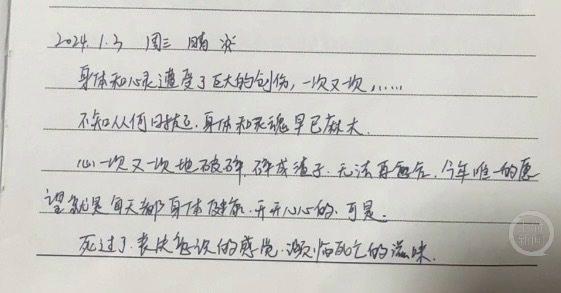 2024.1.3 周三 晴 冷
身体和心灵遭受了巨大的创伤,一次又一次,……
不知从何日起,身体和灵魂早已麻木.
心一次又一次地破碎,碎成渣子.无法再愈合.今年唯一的愿
望就是每天都身体健康.开开心心的.可是.
死过了.丧失意识的感觉.濒临死亡的滋味.
上游新闻